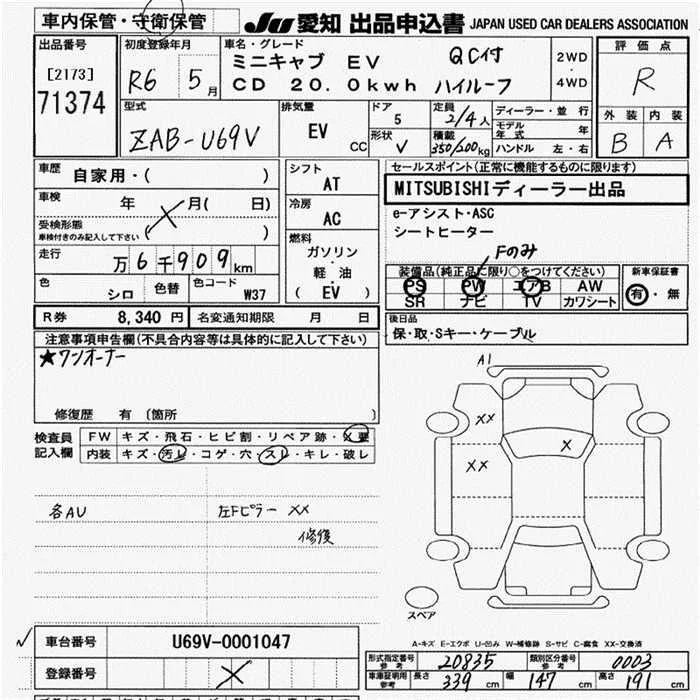 車内保管・守衛保管
JU 愛知 出品申込書 JAPAN USED CAR DEALERS ASSOCIATION
出品番号
[2173]
71374
初度登録年月
R6 5月
車名・グレード
ミニキャブ EV QC付
CD 20.0kwh ハイルーフ
2WD
・
4WD
評価点
R
外装 内装
B A
型式
ZAB-U69V
排気量
EV
CC
ドア
5
形状
V
定員
2/4人
積載
350/200kg
ディーラー・並行
モデル年式 年
ハンドル 左・右
車歴
自家用・( )
車検
年 月( 日)
受検形態
車検付きのみ記入して下さい ( )
走行
万6千909km
色
シロ
色替
色コード
W37
シフト
AT
冷房
AC
燃料
ガソリン
・
軽・油
( EV )
セールスポイント(正常に機能するものに限ります)
MITSUBISHIディーラー出品
e-アシスト・ASC
シートヒーター
Fのみ
装備品(純正品に限り○をつけてください)
PS PW エアB AW
SR ナビ TV カワシート
新車保証書
有・無
R券 8,340 円 名変通知期限 月 日
後日品
保・取・Sキー・ケーブル
注意事項申告欄(不具合内容等は具体的に記入して下さい)
★ワンオーナー
修復歴 有 〔箇所 〕
検査員
記入欄
FW キズ・飛石・ヒビ割・リペア跡・X要
内装 キズ・汚レ・コゲ・穴・スレ・キレ・破レ
各AU
左Fピラー XX
修復
A1
XX
X
XX
スペア
A-キズ E-エクボ U-凹み W-補修跡 S-サビ C-腐食 XX-交換済
車台番号 U69V-0001047
登録番号
形式指定番号
参考
20835
類別区分番号
参考
0003
車庫証明用
参考
長さ 339 cm 幅 147 cm 高さ 191 cm